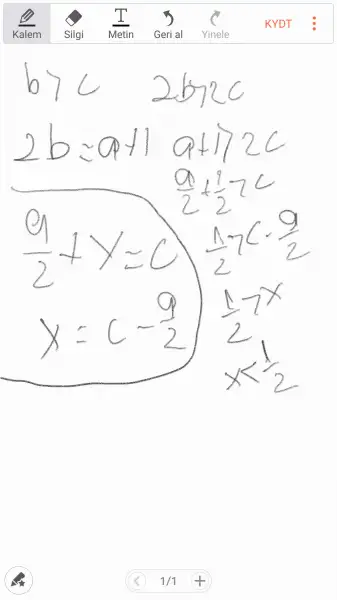 Kalem Silgi Metin Geri al Yinele KYDT
b>c 2b>2c
2b=a+1 a+1>2c
a/2+1/2>c
a/2+x=c 1/2>c-a/2
x=c-a/2 1/2>x
x<1/2
1/1